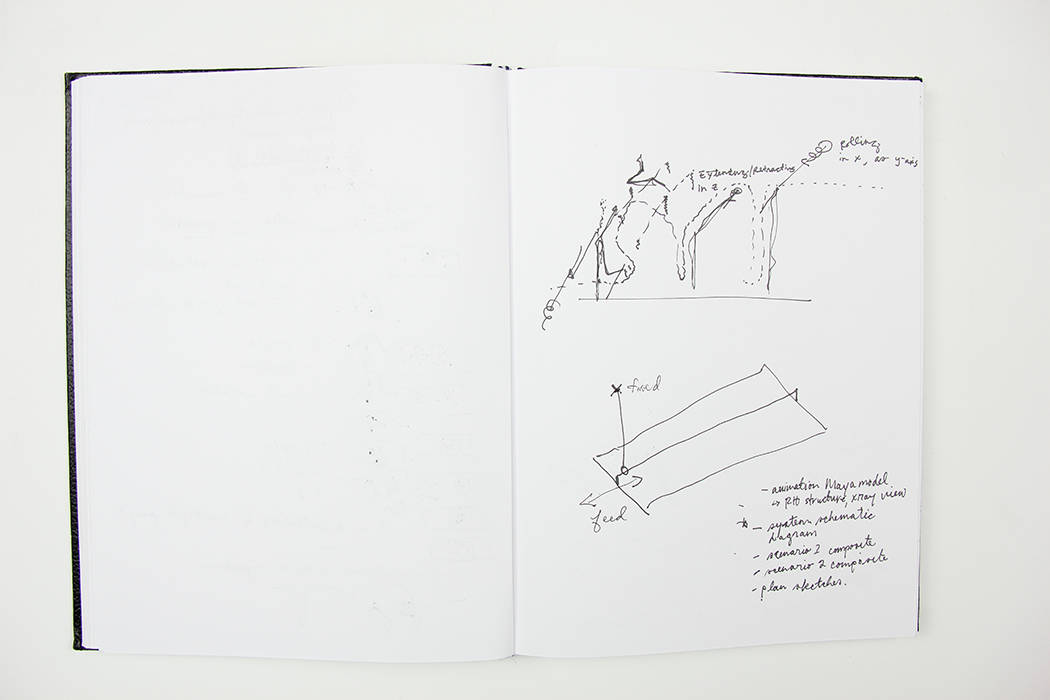 Extending/Retracting
in z
Rolling
in x, as y-axis
fixed
feed
- animation Maya model
structure, xray view
- system schematic
diagram
- scenario 1 composite
- scenario 2 composite
- plan sketches.